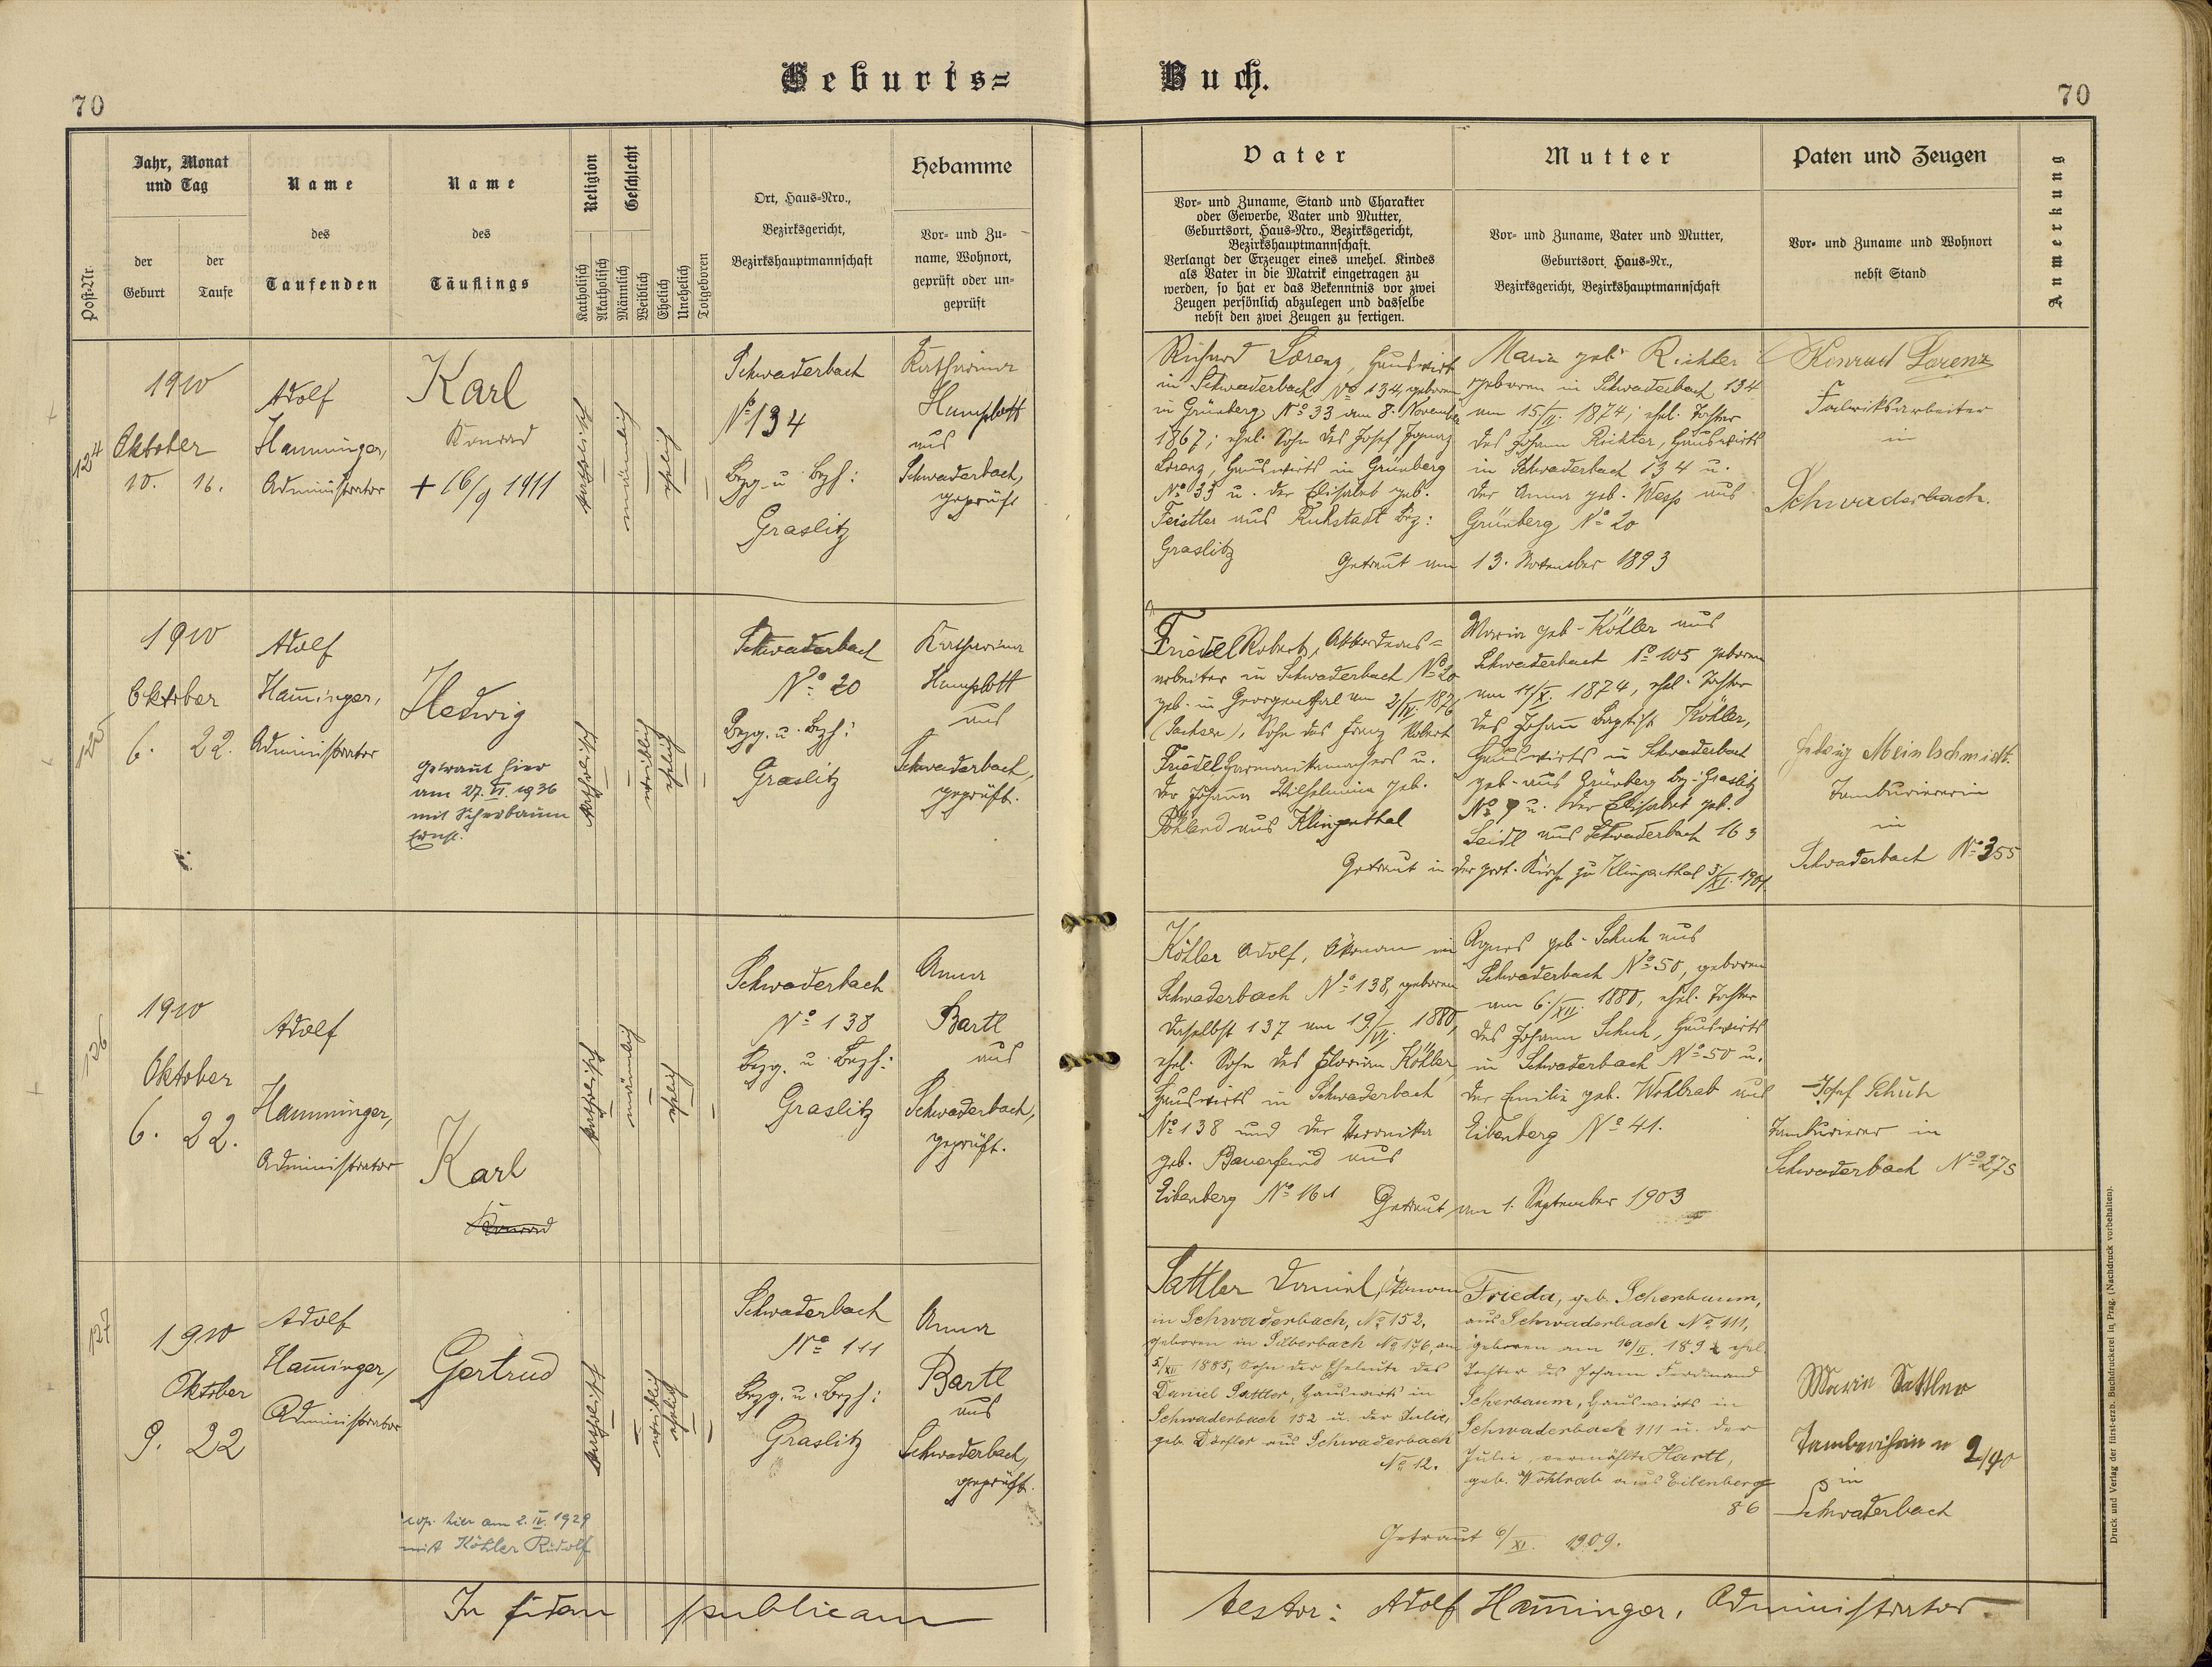 Geburts=
Buch.
70
70
Post-Nr.
Jahr, Monat
und Tag
der
Geburt
der
Taufe
Name
des
Taufenden
Name
des
Täuflings
Religion
Katholisch
Akatholisch
Geschlecht
Männlich
Weiblich
Ehelich
Unehelich
Totgeboren
Ort, Haus-Nro.,
Bezirksgericht,
Bezirkshauptmannschaft
Hebamme
Vor- und Zu-
name, Wohnort,
geprüft oder un-
geprüft
Vater
Vor- und Zuname, Stand und Charakter
oder Gewerbe, Vater und Mutter,
Geburtsort, Haus-Nro., Bezirksgericht,
Bezirkshauptmannschaft.
Verlangt der Erzeuger eines unehel. Kindes
als Vater in die Matrik eingetragen zu
werden, so hat er das Bekenntnis vor zwei
Zeugen persönlich abzulegen und dasselbe
nebst den zwei Zeugen zu fertigen.
Mutter
Vor- und Zuname, Vater und Mutter,
Geburtsort, Haus-Nr.,
Bezirksgericht, Bezirkshauptmannschaft
Paten und Zeugen
Vor- und Zuname und Wohnort
nebst Stand
Anmerkung
124
1910
Oktober
10. 16.
Adolf
Hamminger,
Administrator
Karl
Konrad
+ 16/9 1911
katholisch
männlich
ehelich
Schwaderbach
No 134
Bezg. u. Bezh:
Graslitz
Katharina
Humplott
aus
Schwaderbach,
geprüft
Richard Lorenz, Hauswirt
in Schwaderbach No 134, geboren
in Grünberg No 33 am 8. November
1867; ehel. Sohn des Josef Ignaz
Lorenz, Hauswirts in Grünberg
No 33 u. der Elisabet geb.
Feistler aus Ruhstadt Bez:
Graslitz
Maria geb. Richter
geboren in Schwaderbach 134
am 15/II. 1874; ehel. Tochter
des Johann Richter, Hauswirts
in Schwaderbach 134 u.
der Anna geb. Wesp aus
Grünberg No 20
Getraut am 13. November 1893
Konrad Lorenz
Fabriksarbeiter
in
Schwaderbach.
125
1910
Oktober
6. 22.
Adolf
Ham̄inger,
Administrator
Hedwig
getraut hier
am 27. VI. 1936
mit Scherbaum
Ernst.
katholisch
weiblich
ehelich
Schwaderbach
No 20
Bezg. u. Bezh:
Graslitz
Katharina
Humplott
aus
Schwaderbach,
geprüft.
Friedel Robert, Akkordeons=
arbeiter in Schwaderbach No 20
geb. in Georgenthal am 2/IV. 1876
(Sachsen), Sohn des Franz Robert
Friedel Harmonikamachers u.
der Johann̄a Wilhelmina geb.
Pöhland aus Klingenthal
Maria geb. Köhler aus
Schwaderbach No 105 geboren
am 11/X. 1874, ehel. Tochter
des Johan̄ Baptist Köhler,
Hauswirts in Schwaderbach
geb. aus Grünberg Bez: Graslitz
No 9 u. der Elisabet geb.
Seidl aus Schwaderbach 163
Getraut in der prot. Kirche zu Klingenthal 3/XI. 1901.
Hedwig Meinlschmidt
Tamburiererin
in
Schwaderbach No 355
126
1910
Oktober
6. 22.
Adolf
Hamminger,
Administrator
Karl
Konrad
katholisch
männlich
ehelich
Schwaderbach
No 138
Bezg. u. Bezh:
Graslitz
Anna
Bartl
aus
Schwaderbach,
geprüft.
Köhler Adolf, Ökonom in
Schwaderbach No 138, geboren
daselbst 137 am 19/VI. 1880,
ehel. Sohn des Florian Köhler,
Hauswirts in Schwaderbach
No 138 und der Veronika
geb. Bauerfeind aus
Eibenberg No 161
Agnes geb. Schuh aus
Schwaderbach No 50, geboren
am 6./XII. 1880, ehel. Tochter
des Johann Schuh, Hauswirts
in Schwaderbach No 50 u.
der Emilie geb. Wohlrab aus
Eibenberg No 41.
Getraut am 1. September 1903
Josef Schuh
Tamburierer in
Schwaderbach No 275
127
1910
Oktober
9. 22
Adolf
Ham̄inger,
Administrator
Gertrud
cop. hier am 2. IV. 1929
mit Köhler Rudolf
katholisch
weiblich
ehelich
Schwaderbach
No 111
Bezg. u. Bezh:
Graslitz
Anna
Bartl
aus
Schwaderbach,
geprüft.
Sattler Daniel, Ökonom
in Schwaderbach, No 152,
geboren in Silberbach No 176, am
5/XII 1885, Sohn der Eheleute des
Daniel Sattler, Hauswirts in
Schwaderbach 152 u. der Julie,
geb. Dörfler aus Schwaderbach
No 12.
Frieda, geb. Scherbaum,
aus Schwaderbach No 111,
geboren am 16/II. 1892 ehel.
Tochter des Johann Ferdinand
Scherbaum, Hauswirts in
Schwaderbach 111 u. der
Julie, vermählte Hartl,
geb. Wohlrab aus Eibenberg
86
Getraut 6/XI. 1909.
Marie Sattler
in
Schwaderbach
In fidem publicam
testor: Adolf Ham̄inger, Administrator
Druck und Verlag der fürst-erzb. Buchdruckerei in Prag. (Nachdruck vorbehalten).